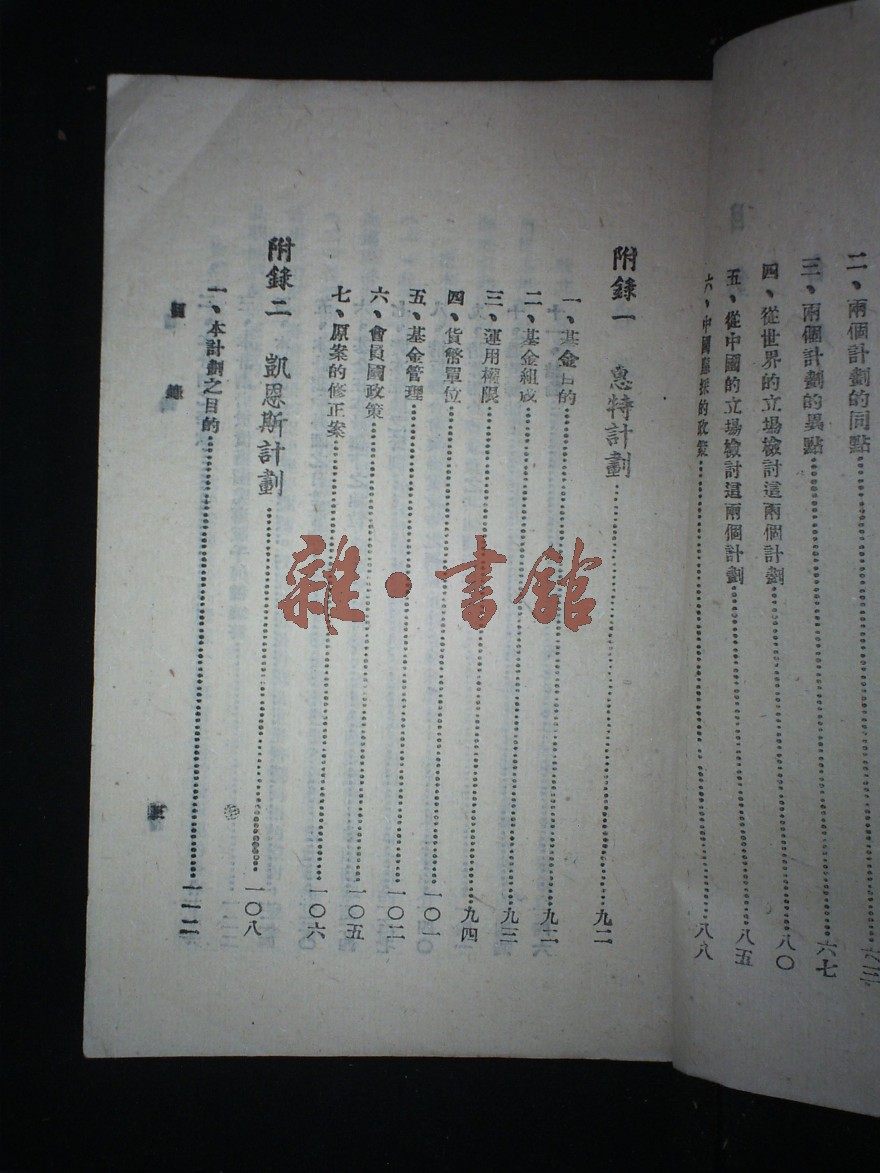 二、兩個計劃的同點
三、兩個計劃的異點……六七
四、從世界的立場檢討這兩個計劃……八〇
五、從中國的立場檢討這兩個計劃……八五
六、中國應採的政策……八八
附錄一 惠特計劃……九二
一、基金目的……九二
二、基金組成……九三
三、運用權限……九四
四、貨幣單位……一〇一
五、基金管理……一〇二
六、會員國政策……一〇五
七、原案的修正案……一〇六
附錄二 凱恩斯計劃……一〇八
一、本計劃之目的……一一二
目錄
雜·書館